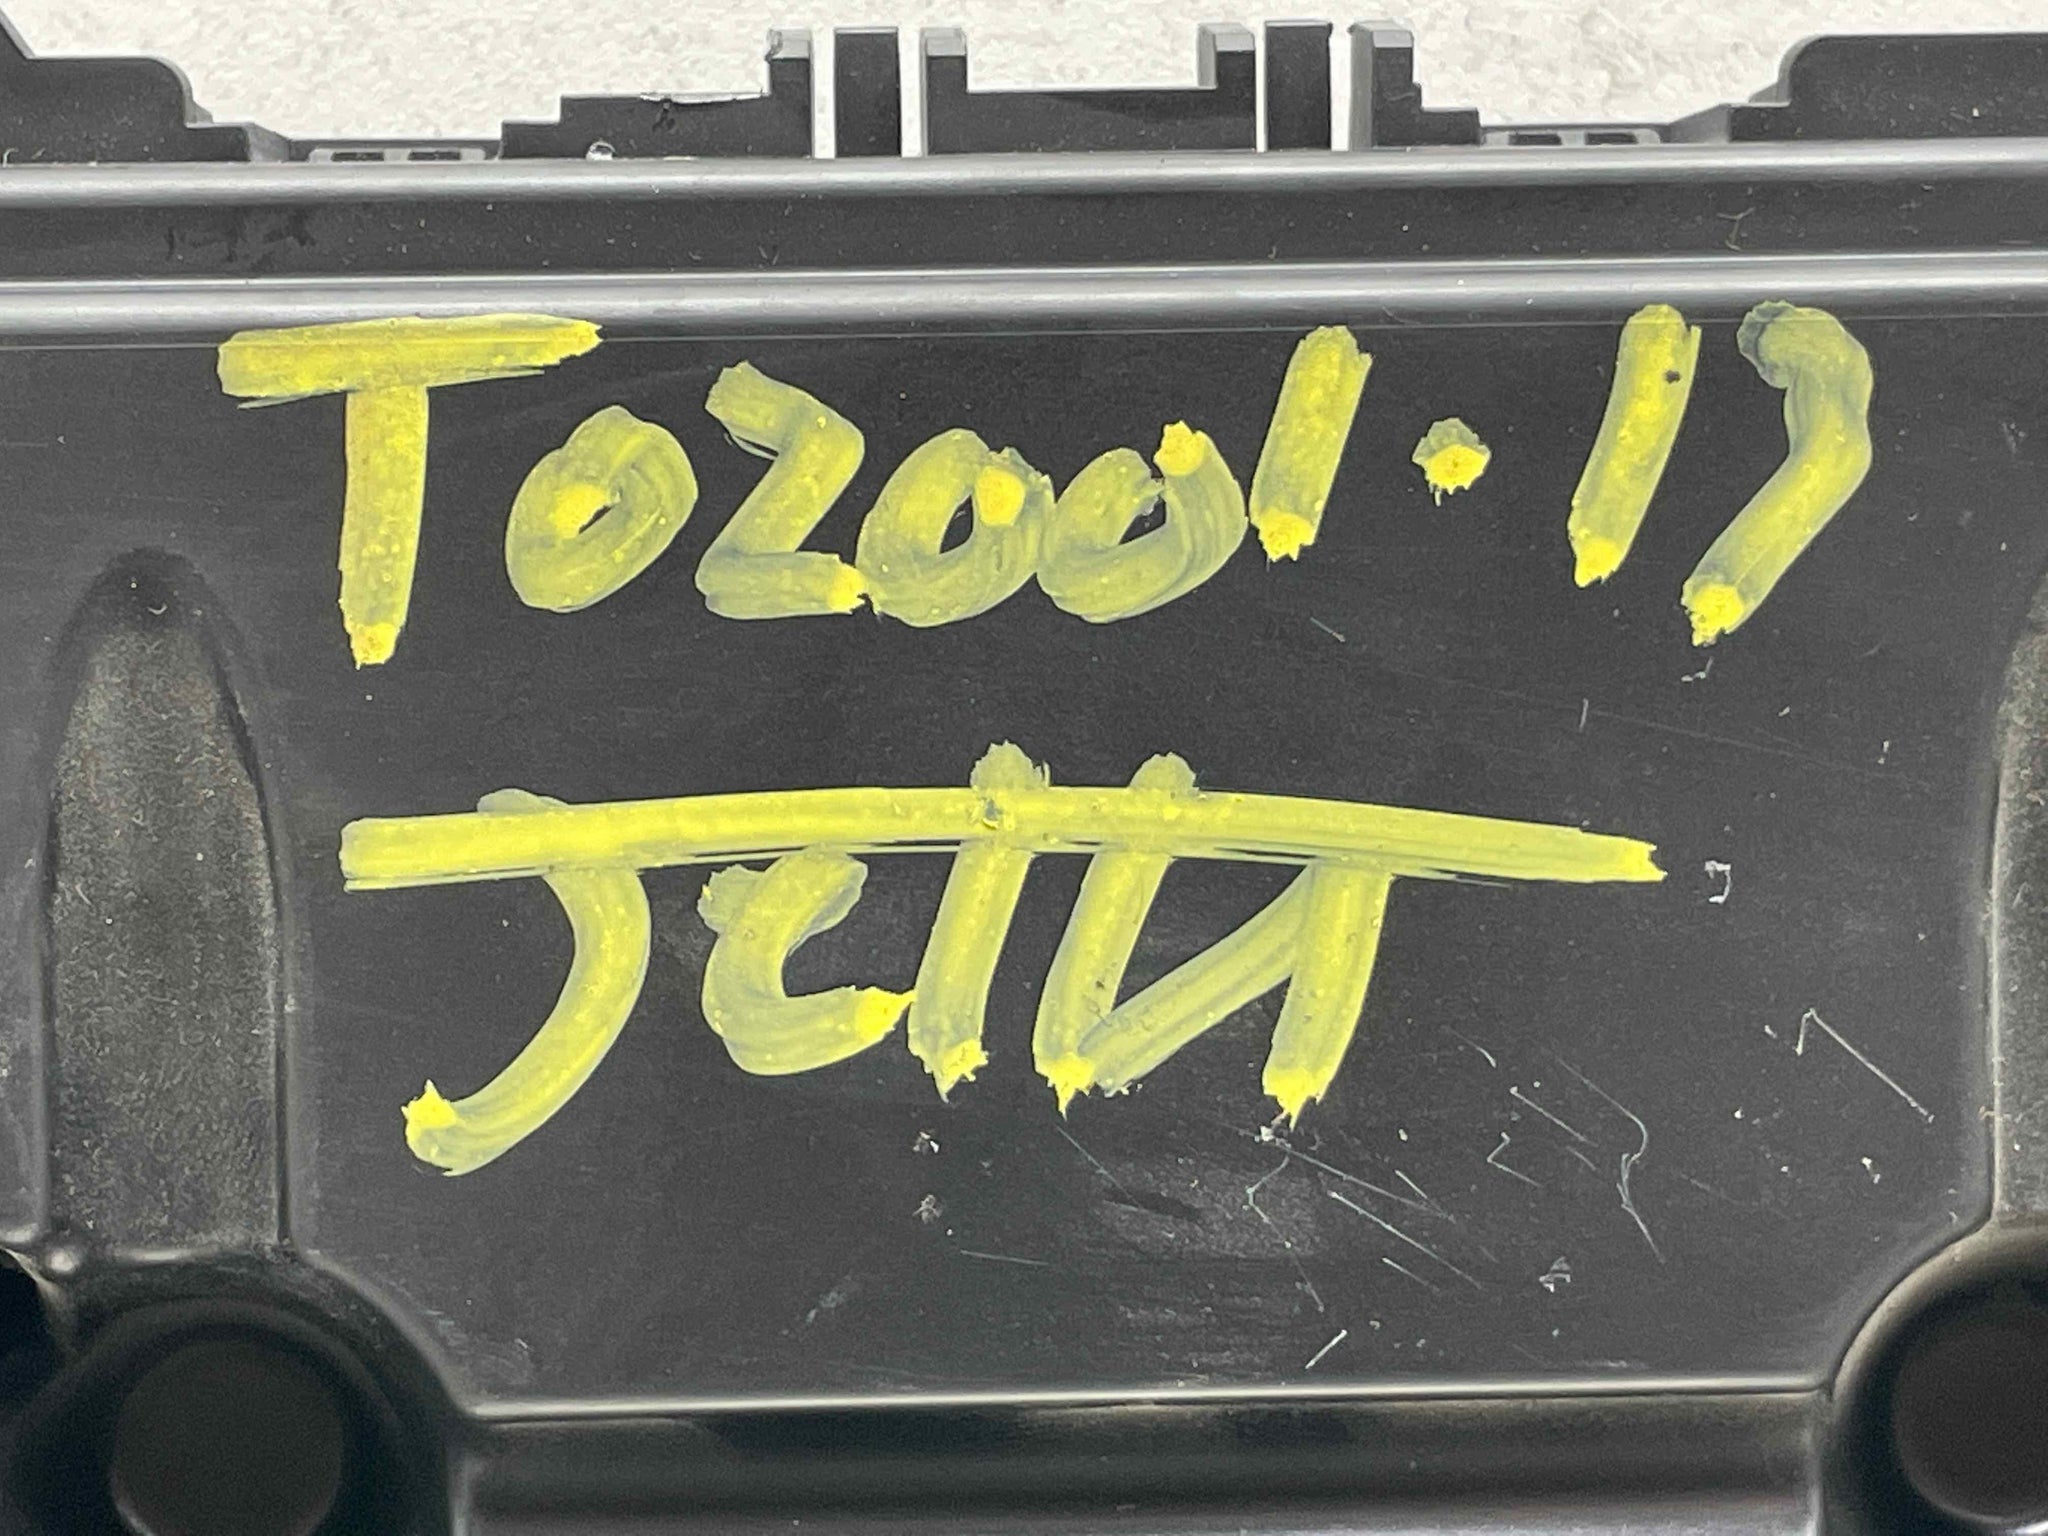 T02001.17
Jetta